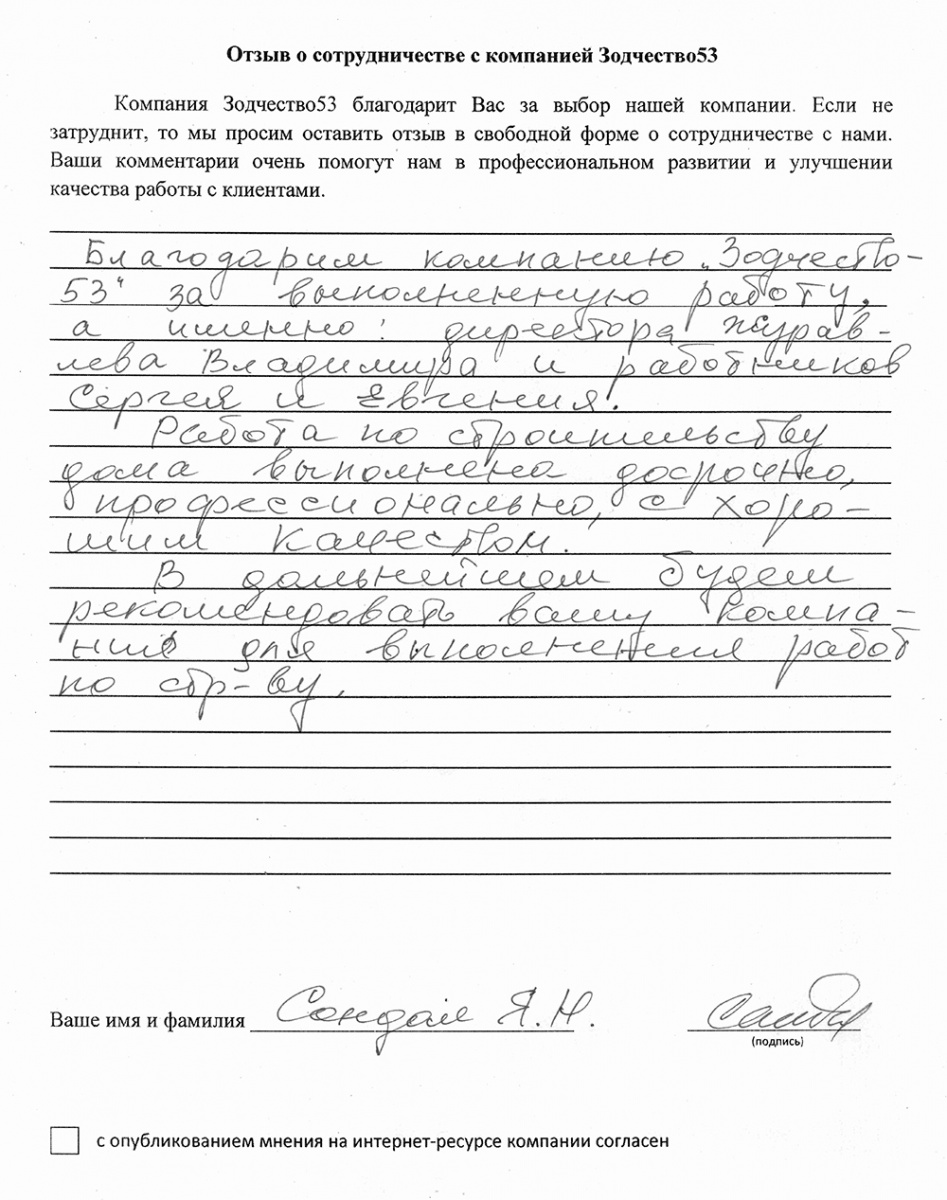 Отзыв о сотрудничестве с компанией Зодчество53
Компания Зодчество53 благодарит Вас за выбор нашей компании. Если не
затруднит, то мы просим оставить отзыв в свободной форме о сотрудничестве с нами.
Ваши комментарии очень помогут нам в профессиональном развитии и улучшении
качества работы с клиентами.
Благодарим компанию „Зодчество-
53" за выполненную работу,
а именно: директора Журав-
лева Владимира и работников
Сергея и Евгения.
Работа по строительству
дома выполнена досрочно,
профессионально, с хоро-
шим качеством.
В дальнейшем будем
рекомендовать вашу компа-
нию для выполнения работ
по стр-ву.
Ваше имя и фамилия Сондал Я.Н.
(подпись)
с опубликованием мнения на интернет-ресурсе компании согласен